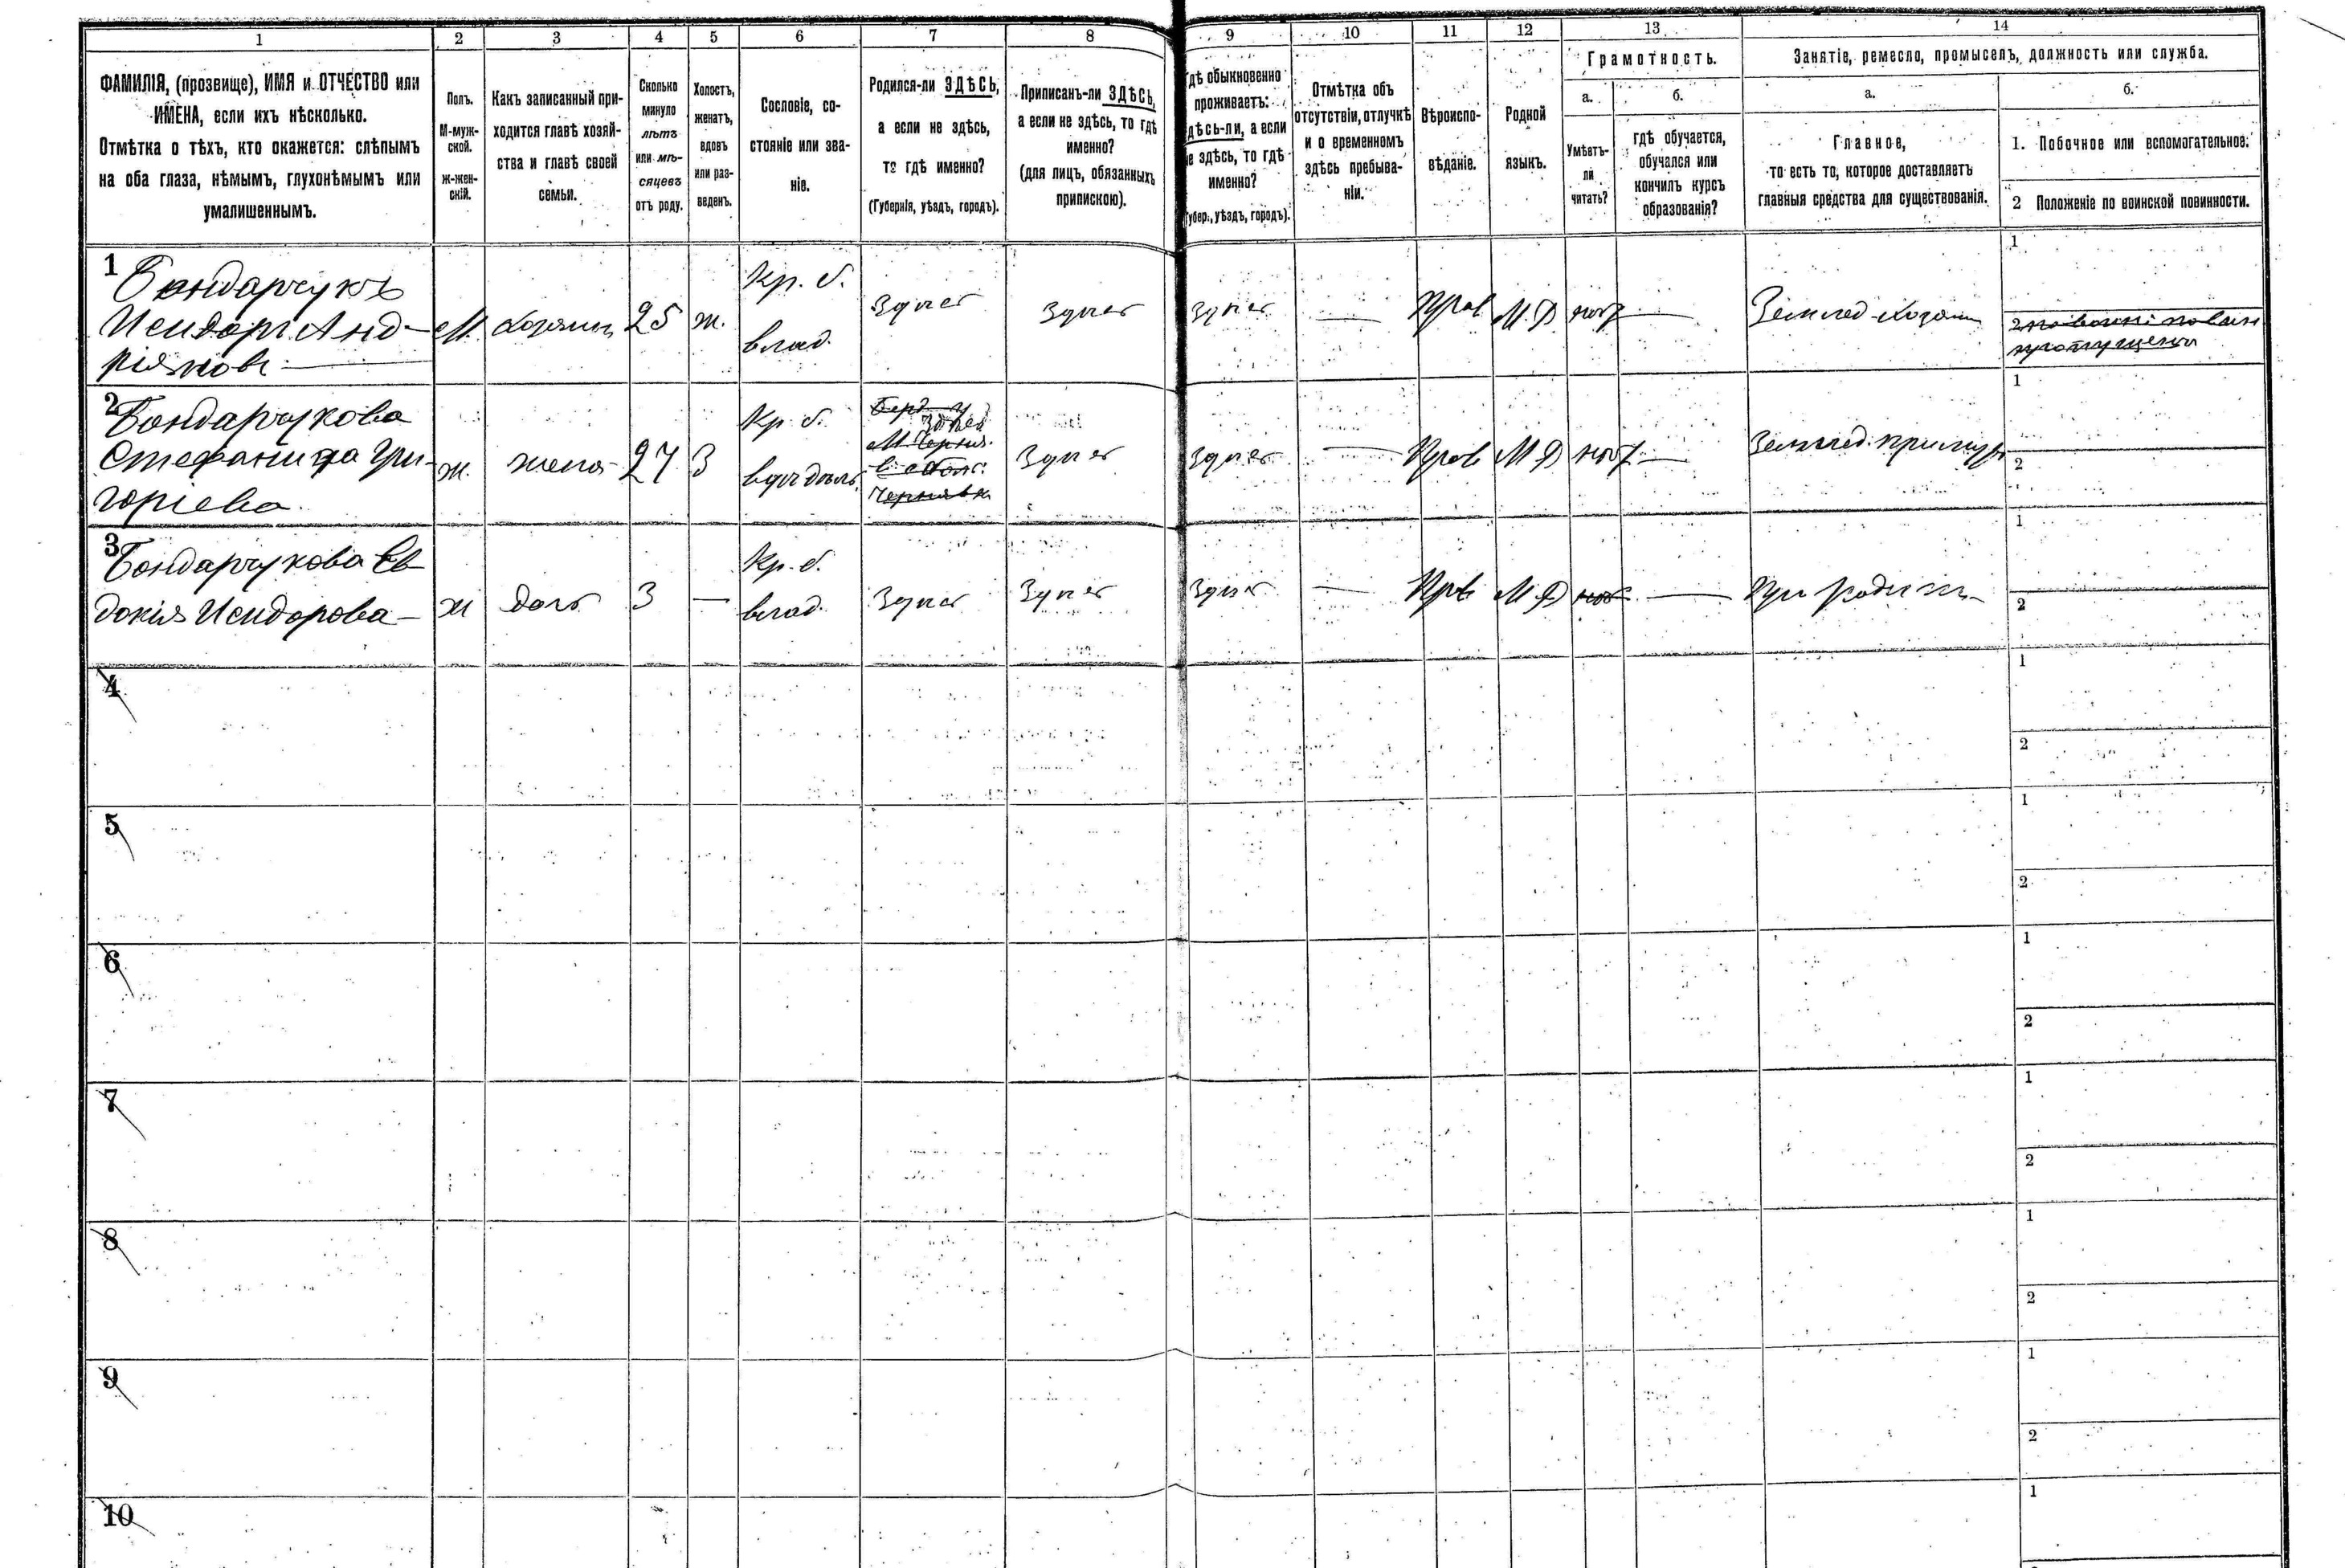 1 2 3 4 5 6 7 8 9 10 11 12 13 14
ФАМИЛІЯ, (прозвище), ИМЯ и ОТЧЕСТВО или
ИМЕНА, если ихъ нѣсколько.
Отмѣтка о тѣхъ, кто окажется: слѣпымъ
на оба глаза, нѣмымъ, глухонѣмымъ или
умалишеннымъ.
Полъ.
М-муж-
ской.
ж-жен-
скій.
Какъ записанный при-
ходится главѣ хозяй-
ства и главѣ своей
семьи.
Сколько
минуло
лѣтъ
или мѣ-
сяцевъ
отъ роду.
Холостъ,
женатъ,
вдовъ
или раз-
веденъ.
Сословіе, со-
стояніе или зва-
ніе.
Родился-ли ЗДѢСЬ,
а если не здѣсь,
то гдѣ именно?
(Губернія, уѣздъ, городъ).
Приписанъ-ли ЗДѢСЬ,
а если не здѣсь, то гдѣ
именно?
(для лицъ, обязанныхъ
припискою).
дѣ обыкновенно
проживаетъ:
дѣсь-ли, а если
е здѣсь, то гдѣ
именно?
убер., уѣздъ, городъ).
Отмѣтка объ
отсутствіи, отлучкѣ
и о временномъ
здѣсь пребыва-
ніи.
Вѣроиспо-
вѣданіе.
Родной
языкъ.
Грамотность.
а.
Умѣетъ-
ли
читать?
б.
гдѣ обучается,
обучался или
кончилъ курсъ
образованія?
Занятіе, ремесло, промыселъ, должность или служба.
а.
Главное,
то есть то, которое доставляетъ
главныя средства для существованія.
б.
1. Побочное или вспомогательное.
2 Положеніе по воинской повинности.
1
Бондарчукъ
Исидоръ Анд-
ріяновъ
М. хозяинъ 25 ж.
Кр. б.
влад.
Здѣсь Здѣсь Здѣсь — Прав М.Р нѣт — Землед хозяин
1
2
2
Бондарчукова
Стефанида Гри-
горіева
ж. жена 27 З
Кр. б.
Здѣсь Здѣсь Здѣсь — Прав М Р нѣт — Землед. при муж
1
2
3
Бондарчукова Ев-
докія Исидорова
ж дочь 3 —
Кр. б.
влад.
Здѣсь Здѣсь Здѣсь — Прав М Р нѣт — При родит
1
2
4
1
2
5
1
2
6
1
2
7
1
2
8
1
2
9
1
2
10
1